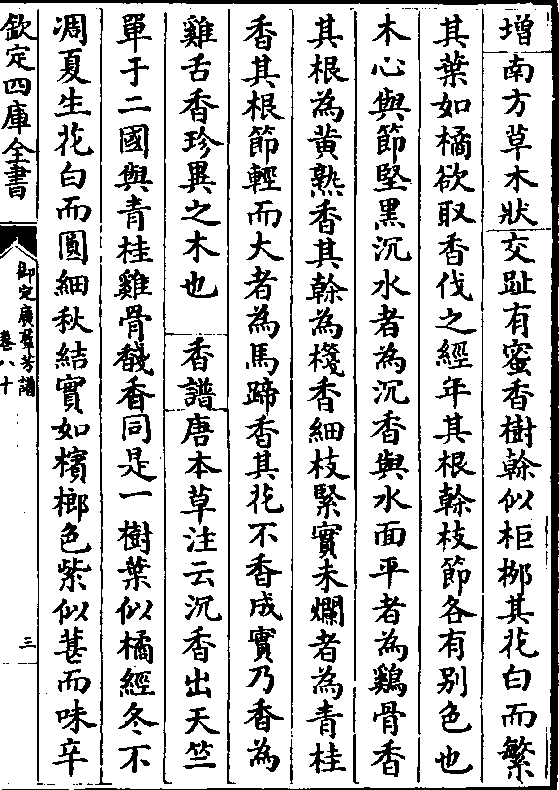 增南方草木狀交趾有蜜香樹榦似柜桞其花白而繁
其葉如橘欲取香伐之經年其根榦枝節各有别色也
木心與節堅黑沉水者為沉香與水面平者為鷄骨香
其根為黄熟香其榦為棧香細枝緊實未爛者為青桂
香其根節輕而大者為馬蹄香其花不香成實乃香為
雞舌香珍異之木也　香譜唐本草注云沉香出天竺
單于二國與青桂雞骨馢香同是一樹葉似橘經冬不
凋夏生花白而圓細秋結實如檳榔色紫似葚而味辛
欽定四庫全書
御定廣羣芳譜
卷八十
三